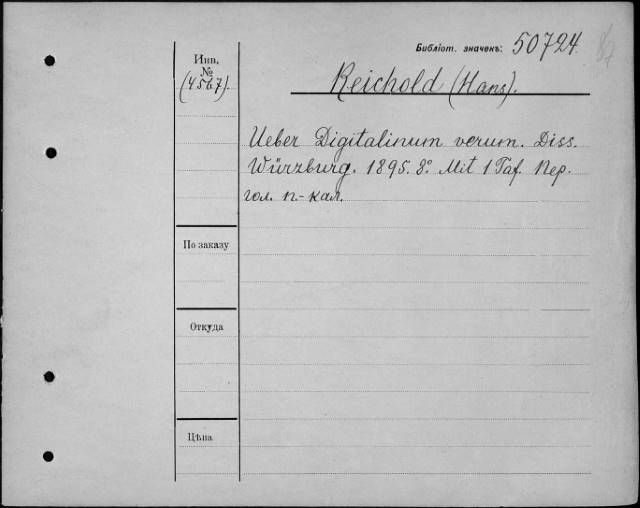 Библіот. значекъ: 50724
Инв.
№
(4567).
Reichold (Hans).
Ueber Digitalinum verum. Diss.
Würzburg. 1895. 8º. Mit 1 Taf. Пер.
гол. п.-кал.
По заказу
Откуда
Цѣна